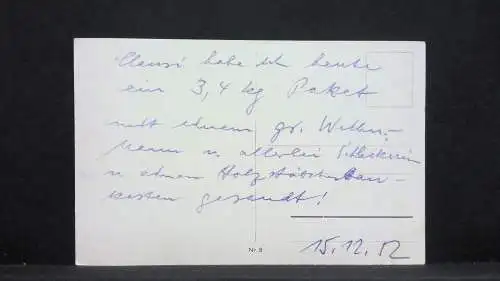 Clausi habe ich heute
ein 3,4 kg Paket
mit einem gr. Weihn.-
mann u. allerlei Schleckerein
u. einen Holzstäbchenbau-
kasten gesandt!
15.12.52
Nr. 8